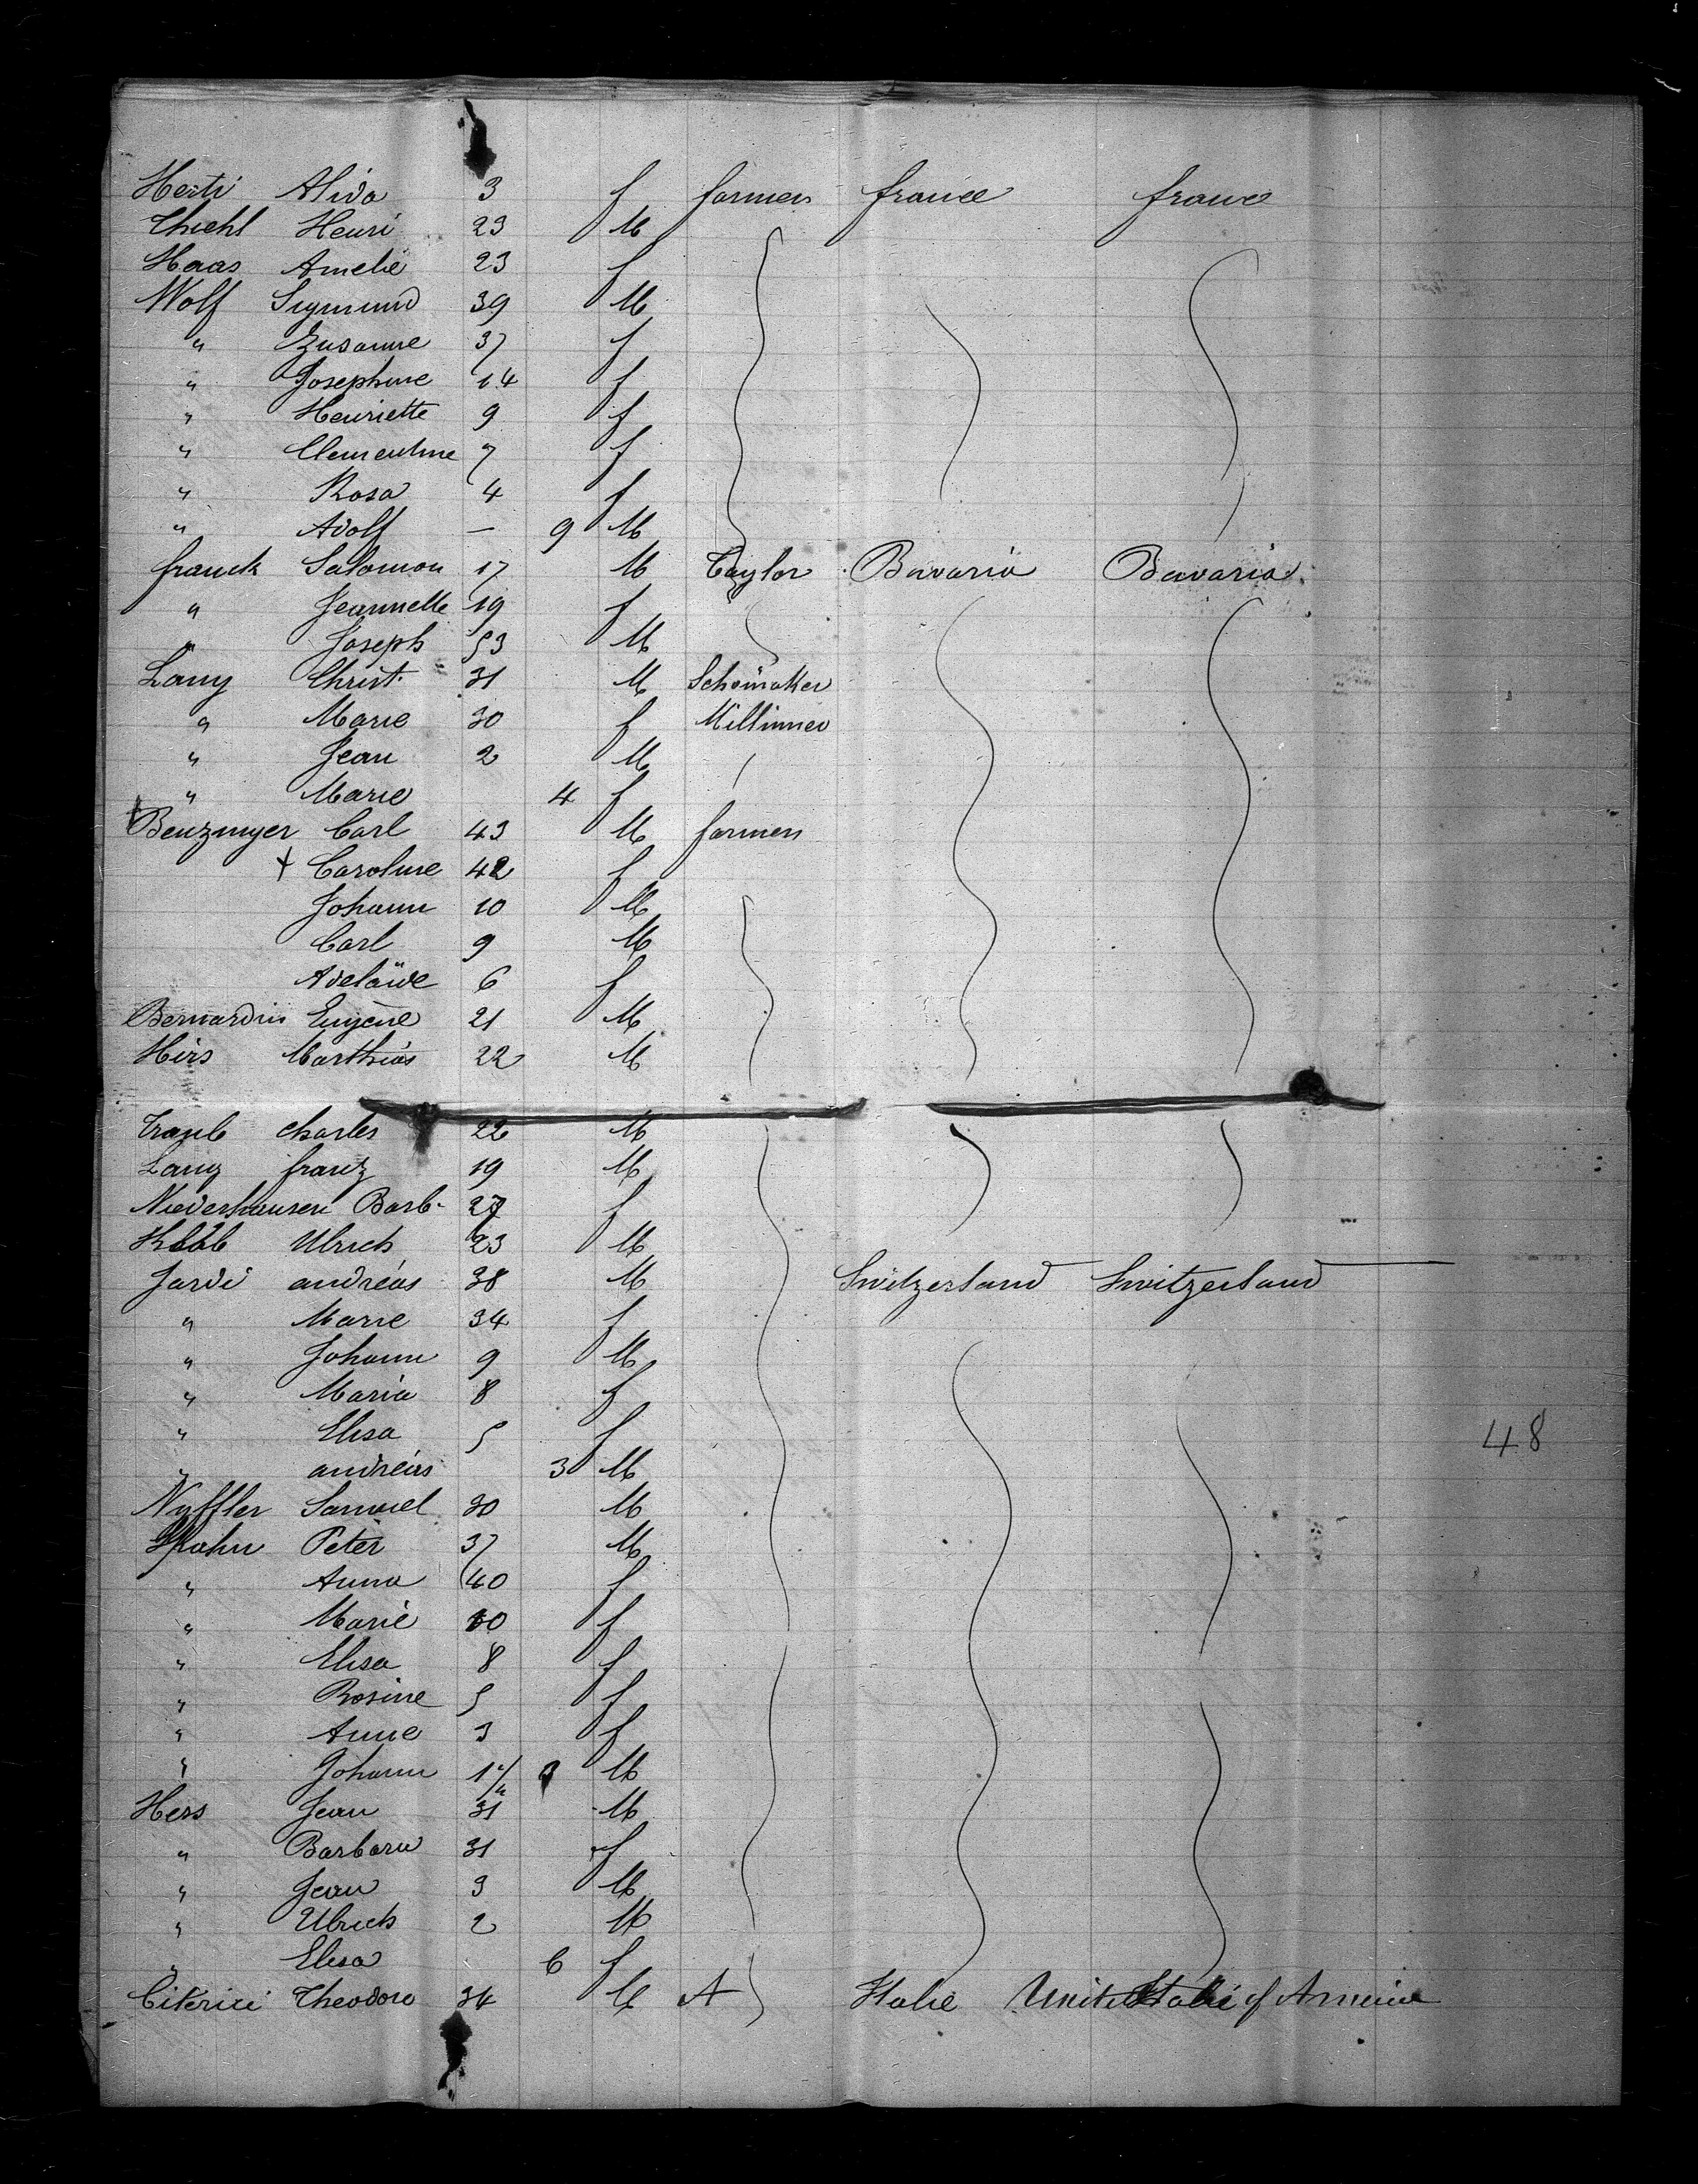 Herti Alida 3 f farmer france france
Thiehl Henri 23 M
Haas Amelie 23 f
Wolf Sigmund 39 M
" Zusanne 37 f
" Josephine 14 f
" Henriette 9 f
" Clementine 7 f
" Rosa 4 f
" Adolf — 9 M
franck Salomon 17 M Taylor Bavaria Bavaria
" Jeannette 19 f
" Joseph 53 M
Lang Christ. 31 M Schomaker
" Marie 30 f Millinner
" Jean 2 M
" Marie 4 f
Benzinger Carl 43 M farmer
Caroline 42 f
Johann 10 M
Carl 9 M
Adelaïde 6 f
Bernardin Eugene 21 M
Hirs Marthias 22 M
Traub charles 22 M
Lang franz 19 M
Niederhausen Barb. 27 f
Ulrich 23 M
Jardi andréas 38 M Switzerland Switzerland
" Marie 34 f
" Johann 9 M
" Maria 8 f
" Elisa 5 f
48
" andréas 3 M
Nyffler Samuel 30 M
Spahn Peter 37 M
" Anna 40 f
" Marie 10 f
" Elisa 8 f
" Rosine 5 f
" Anne 3 f
" Johann 1 M
Hers Jean 31 M
" Barbara 31 f
" Jean 3 M
" Ulrich 2 M
" Elisa 6 f
Citerici Theodoro 34 M A Italie United of America